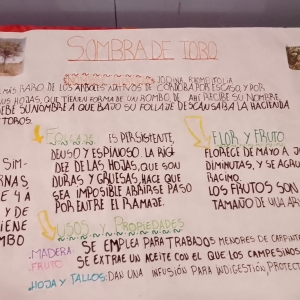 SOMBRA DE TORO
JODINA RHOMBIFOLIA
MÁS RARO DE LOS ÁRBOLES NATIVOS DE CÓRDOBA POR ESCASO, Y POR
SUS HOJAS, QUE TIENEN FORMA DE UN ROMBO DE AHÍ RECIBE SU NOMBRE.
DEBE SU NOMBRE A QUE BAJO SU FOLLAJE DESCANSABA LA HACIENDA
TOROS.
FOLLAJE: ES PERSISTENTE,
DENSO Y ESPINOSO. LA RIGI
DEZ DE LAS HOJAS, QUE SON
DURAS Y GRUESAS, HACE QUE
SEA IMPOSIBLE ABRIRSE PASO
POR ENTRE EL RAMAJE.
FLOR Y FRUTO
FLORECE DE MAYO A J
DIMINUTAS, Y SE AGRU
RACIMO.
LOS FRUTOS SON
TAMAÑO DE UNA AR
SIM-
RNAS,
E 4 A
Y DE
IENE
OMBO
USOS Y PROPIEDADES
MADERA SE EMPLEA PARA TRABAJOS MENORES DE CARPINT
FRUTO SE EXTRAE UN ACEITE CON EL QUE LOS CAMPESINOS
HOJA Y TALLOS: DAN UNA INFUSIÓN PARA INDIGESTIÓN, PROTEC